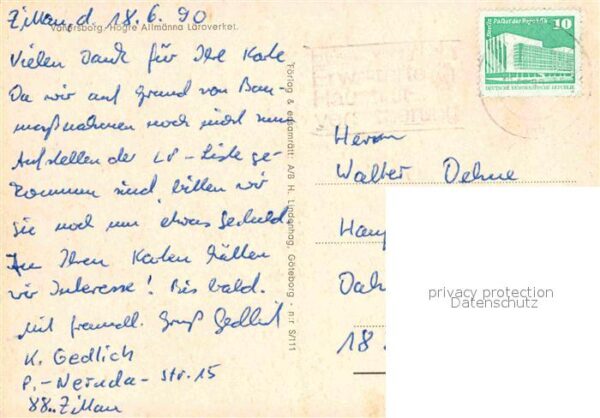 Zittau, d. 18.6.90
Vänersborg. Högre Allmänna Läroverket.
Vielen Dank für Ihre Karte
Da wir auf Grund von Bau-
maßnahmen noch nicht zum
Aufstellen der LP-Liste ge-
kommen sind, bitten wir
Sie noch um etwas Geduld.
An Ihren Karten hätten
wir Interesse! Bis bald.
Mit freundl. Gruß Gedlich
K. Gedlich
P.-Neruda-Str. 15
88.. Zittau
Förlag & ensamrätt: A/B H. Lindenhag, Göteborg - n:r S/111
Berlin, Palast der Republik
10
DEUTSCHE DEMOKRATISCHE REPUBLIK
Herrn
Walter Dehne
Dah
18.
privacy protection
Datenschutz